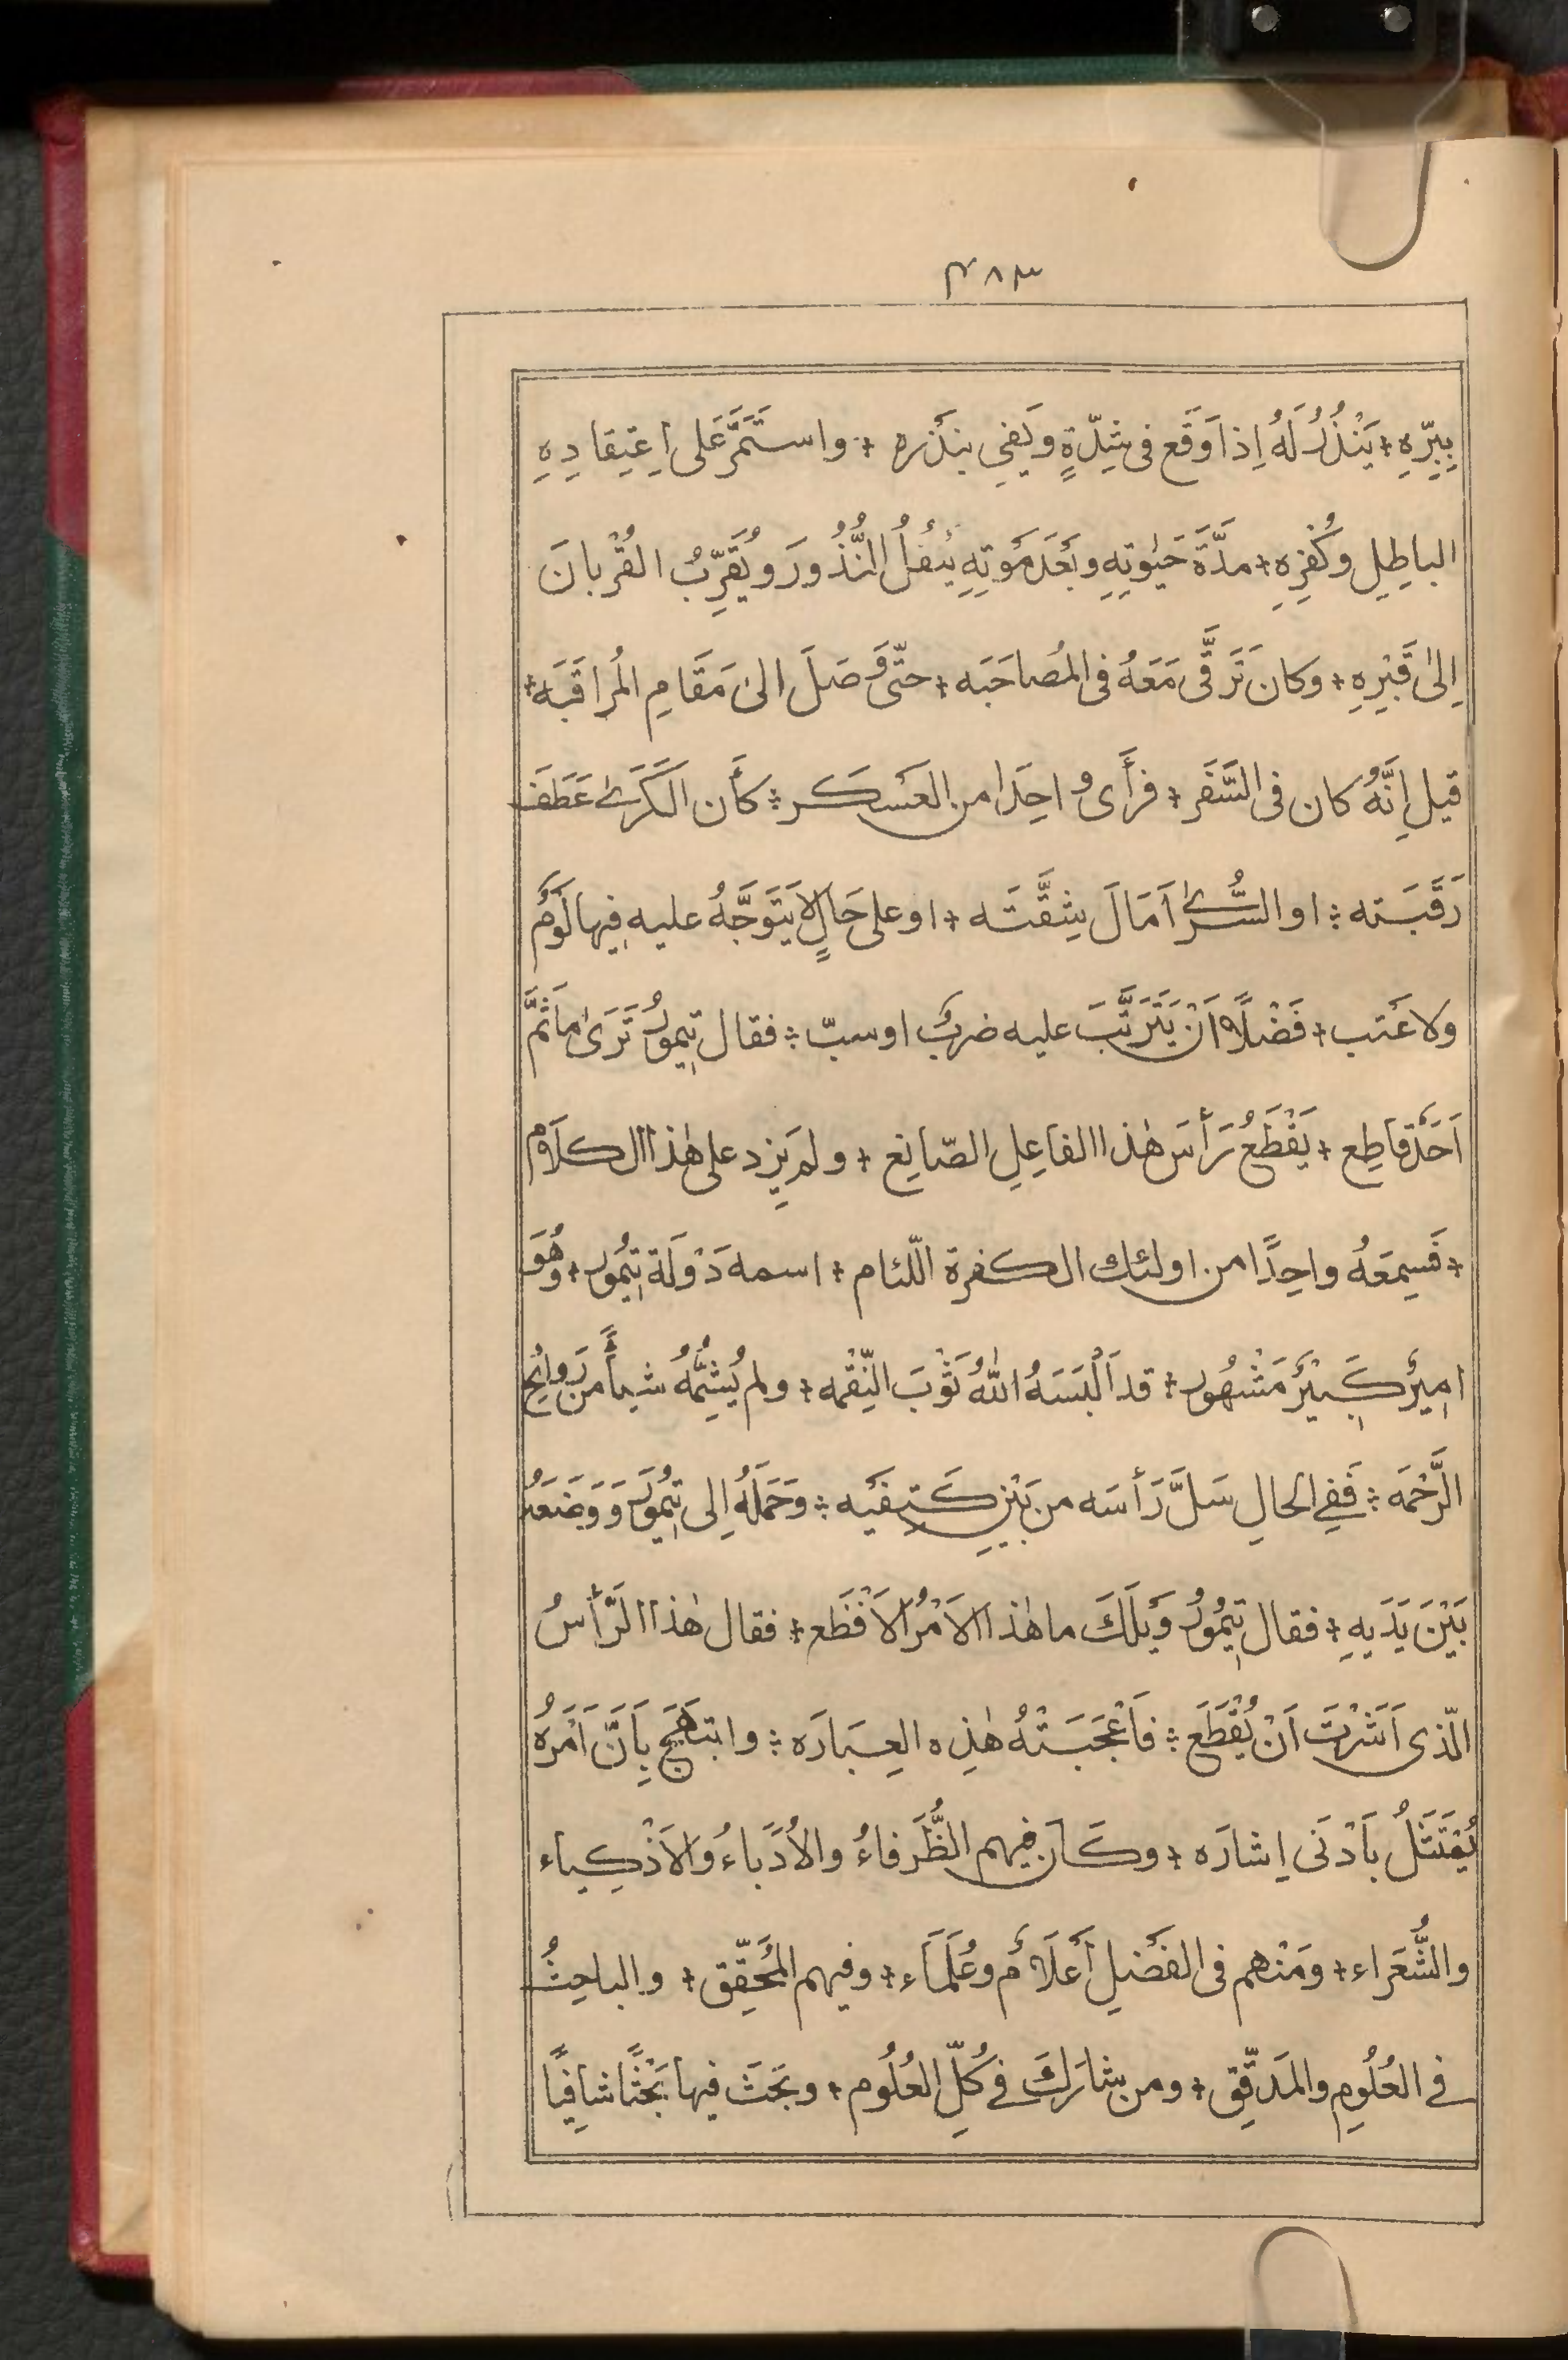 ٣٨٣
بِبِرِّهِ + يَنْذُرُ لَهُ اِذا وَقَع فی شِدّةٍ وَيَفِي بنَذْرهِ + واستَمَرَّ عَلى اِعتِقادِهِ
الباطِلِ وكُفرِهِ + مدَّةَ حَيٰوتِهِ وبَعْدَ مَوتِهِ يَنقُلُ النُّذُورَ ويُقَرِّبُ القُرْبانَ
اِلىٰ قَبْرِهِ + وكان تَرَقَّى مَعَهُ فی المُصاحَبَه + حتّى وَصَلَ الىٰ مَقَامِ المُراقَبَه +
قيل اِنَّهُ كان فی السَّفَر + فرأَى واحِدًا من العَسكَر + كأن الكَرَىٰ عَطَفَ
رَقَبَته + او السُّرَىٰ اَمَالَ شِقَّتَه + او على حَالٍ لا يَتَوَجَّهُ عليه فِيها لَوْمٌ
ولا عَتب + فَضْلًا اَنْ يَتَرَتَّبَ عليه ضربٌ او سبّ + فقال تيمورُ تَرَىٰ ما ثَمَّ
اَحَدٌ قاطِع + يَقْطَعُ رَأسَ هٰذا الفاعِلِ الصّانِع + ولم يَزِد على هٰذا الكلام
+ فَسِمعَهُ واحِدًا من اولئك الكفرة اللّئام + اسمه دَوْلَة تِيمُور + وهُوَ
اميرٌ كَبيْرٌ مَشْهُور + قد اَلْبَسَهُ اللهُ ثَوْبَ النِّقْمه + ولم يُشِمَّهُ شيأً من رَوايِحِ
الرَّحْمَه + فَفِي الحالِ سَلَّ رَأسَه من بَيْنِ كَتِفَيه + وَحَمَلَهُ اِلى تيمُورَ وَوَضَعَهُ
بَيْنَ يَدَيهِ + فقال تيمُورُ وَيلَكَ ما هٰذا الاَمْرُ الاَفْظَع + فقال هٰذا الرَّأسُ
الّذی اَشَرْتَ اَنْ يُقْطَعَ + فَاَعْجَبَتْهُ هٰذِه العِبَارَه + وابتَهَجَ بِاَنَّ اَمْرَهُ
يُمْتَثَلُ بِاَدْنَى اِشارَه + وكَان فيهم الظُّرَفاءُ والاُدَباءُ وَالاَذْكِياء
والشُّعَراء + ومَنْهم فی الفَضلِ أَعلَامٌ وعُلَمَاء + وفيهم المُحَقِّق + والباحِثُ
فی العُلُومِ والمَدقِّق + ومن شارَكَ فی كُلِّ العُلُوم + وبَحَثَ فيها بَحْثًا شافِيًا